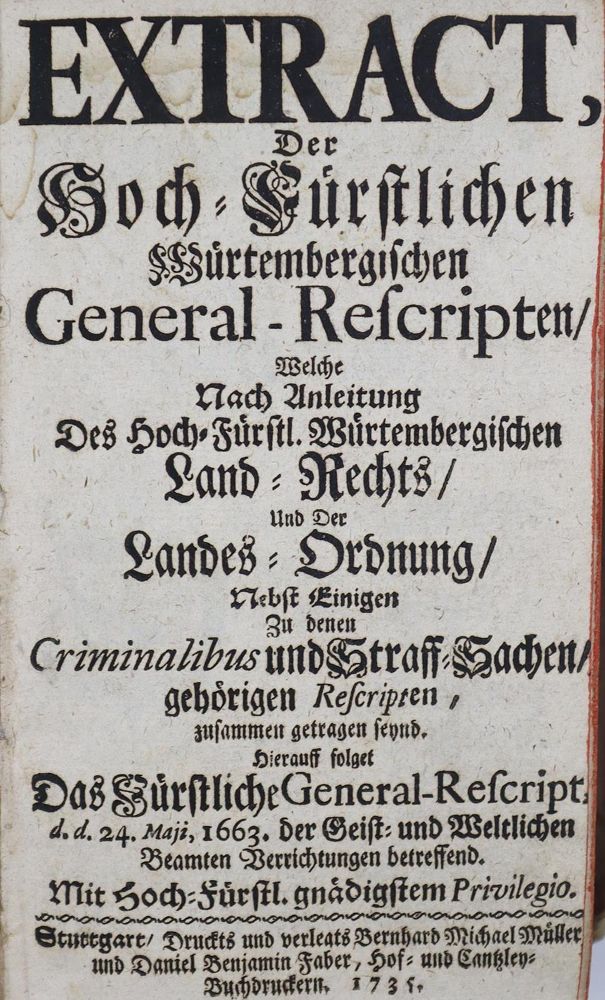 EXTRACT,
Der
Hoch-Fürstlichen
Würtembergischen
General-Rescripten/
Welche
Nach Anleitung
Des Hoch-Fürstl. Würtembergischen
Land-Rechts/
Und Der
Landes-Ordnung/
Nebst Einigen
Zu denen
Criminalibus und Straff-Sachen/
gehörigen Rescripten,
zusammen getragen seynd.
Hierauff folget
Das Fürstliche General-Rescript,
d. d. 24. Maji, 1663. der Geist- und Weltlichen
Beamten Verrichtungen betreffend.
Mit Hoch-Fürstl. gnädigstem Privilegio.
Stuttgart/ Druckts und verlegts Bernhard Michael Müller
und Daniel Benjamin Faber, Hof- und Cantzley-
Buchdruckern. 1735.